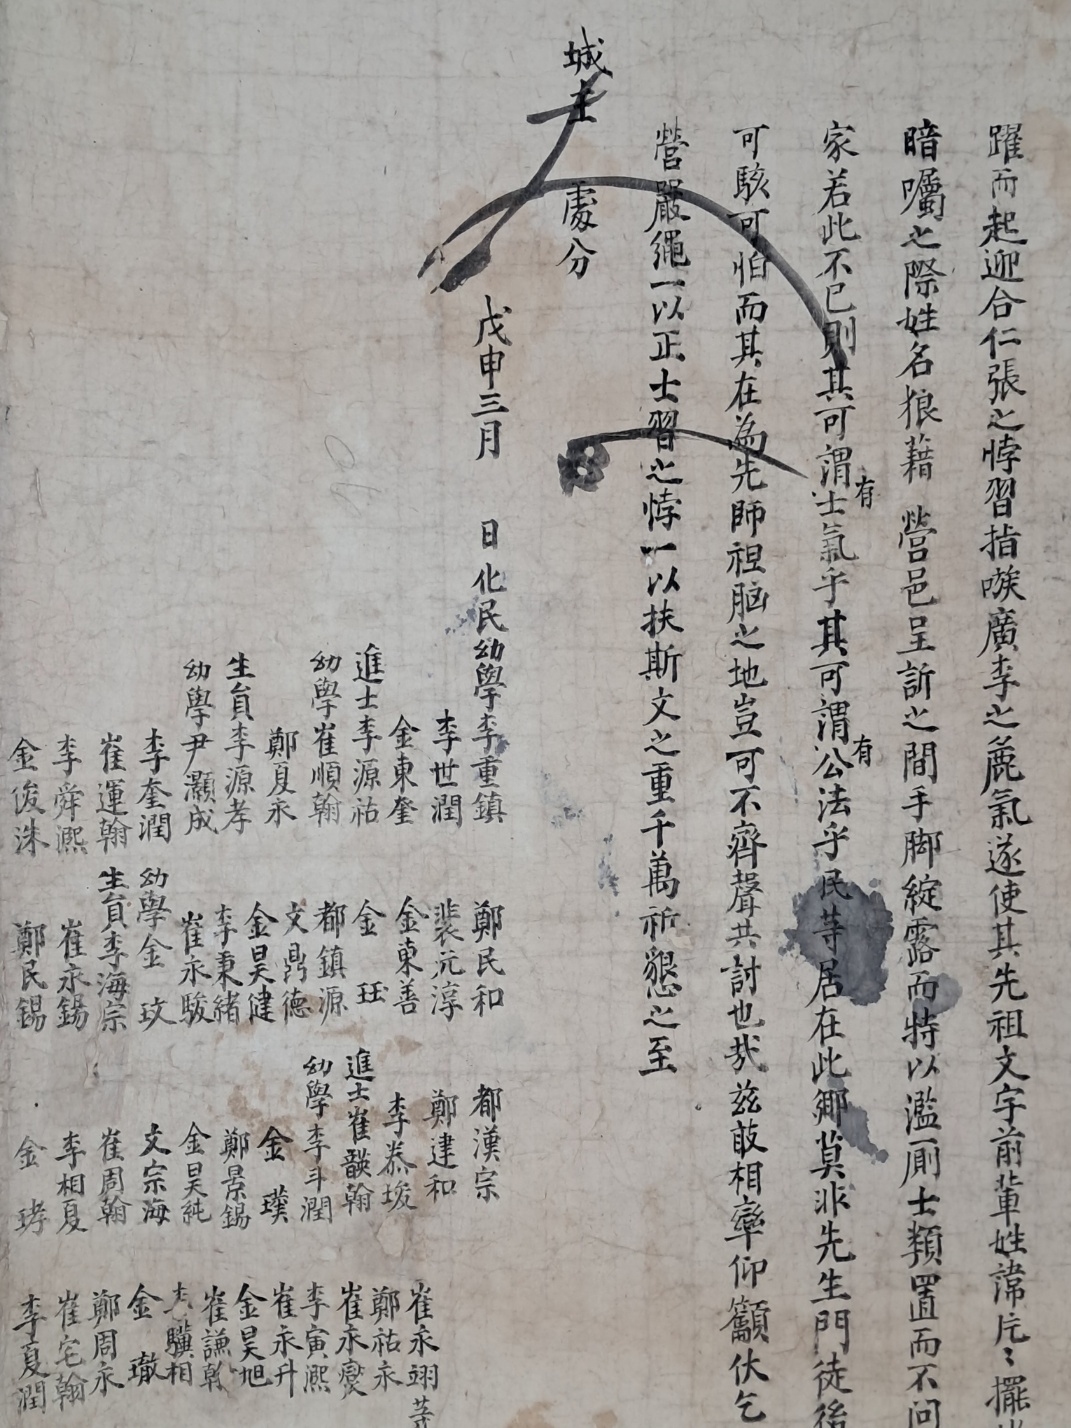 躍而起迎合仁張之悖習指嗾廣李之麁氣遂使其先祖文字前輩姓諱片〻擺
暗囑之際姓名狼藉 營邑呈訴之間手脚綻露而特以濫厠士類置而不問
家若此不已則其可謂有士氣乎其可謂有公法乎民等居在此鄉莫非先生門徒後
可駭可怕而其在爲先師袒脳之地豈可不齊聲共討也哉玆敢相率仰籲伏乞
營嚴繩一以正士習之悖一以扶斯文之重千萬祈懇之至
城主 處分
戊申三月 日化民幼學李重鎮 鄭民和 都漢宗 崔永翊等
李世潤 裴元淳 鄭建和 鄭祐永
金東奎 金東善 李泰埈 崔永爕
進士李源祜 金 珏 進士崔韺翰 李寅熙
幼學崔順翰 都鎮源 幼學李斗潤 崔永升
鄭夏永 文鼎德 金 璞 金昊旭
生員李源孝 金昊健 鄭景錫 崔謙翰
幼學尹灝成 李秉緒 金昊純 李驥相
李奎潤 崔永駿 文宗海 金 璥
崔運翰 幼學金 玟 崔周翰 鄭周永
李舜熙 生員李海宗 李相夏 崔宅翰
金俊洙 崔永錫 金 㻐 李夏潤
鄭民錫